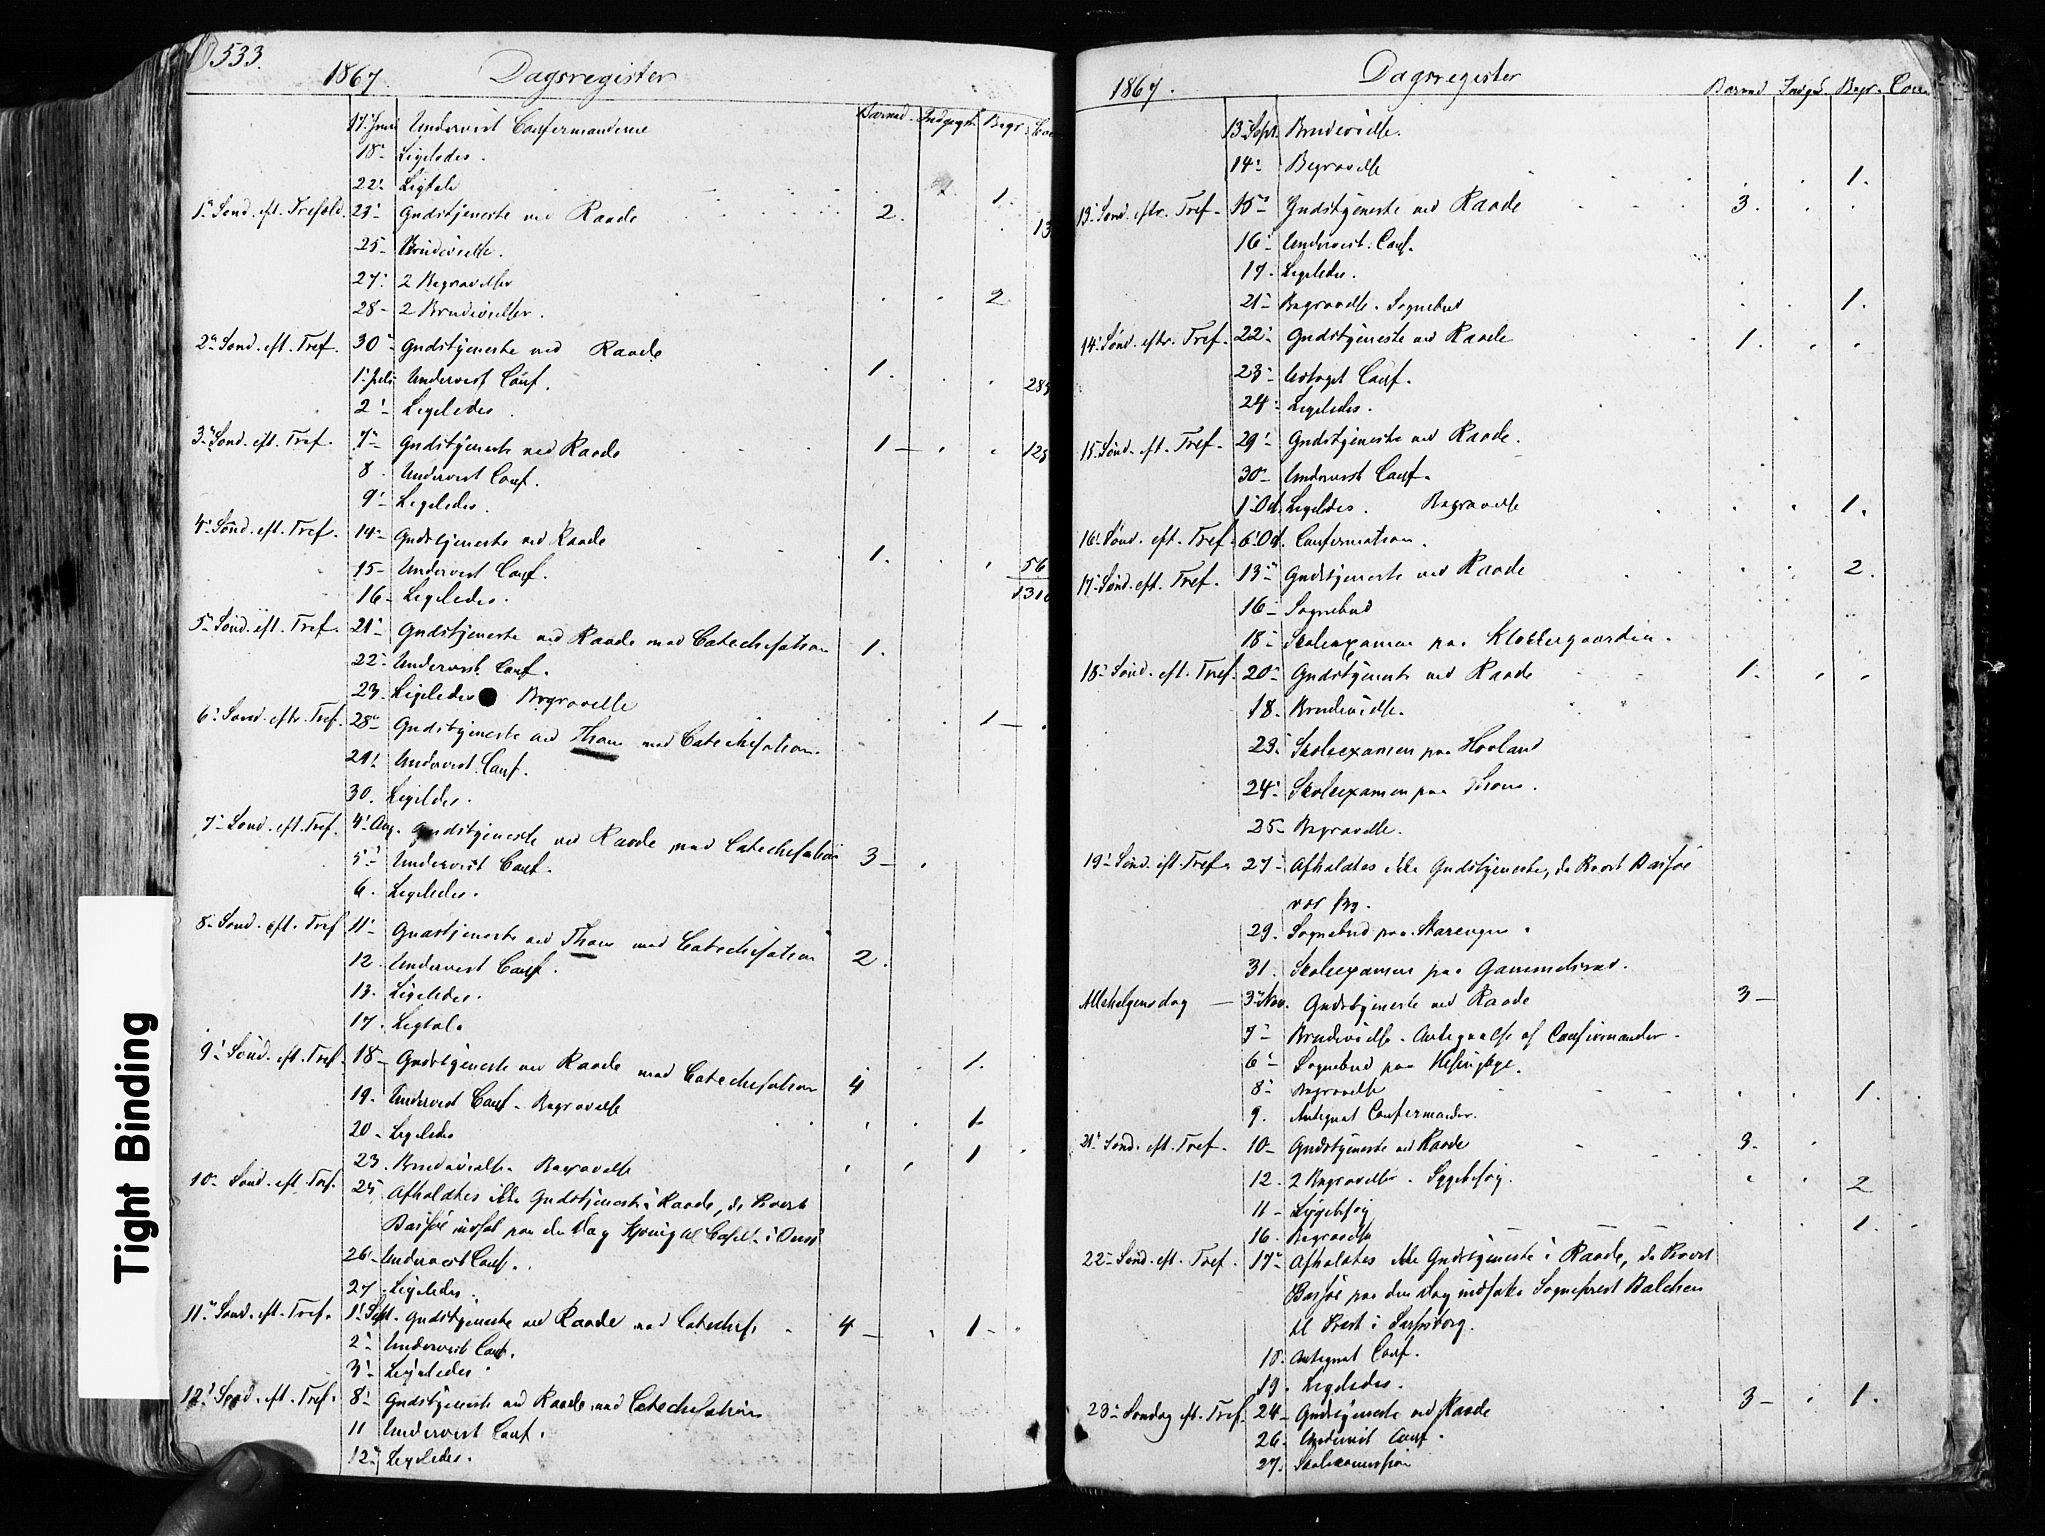 533.
1867. Dagsregister
Barned. Indgagn. Begr.
17. Juni Undervist Confirmanderne
18. Ligeledes.
22. Ligtale 1.
1. Sönd. eft. Trefold. 23. Gudstjeneste ved Raade 2. 13
25. Brudevielse.
27. 2 Begravelser 2.
28. 2 Brudevielser.
2. Sönd. eft. Tref. 30. Gudstjeneste ved Raade 1.
1. Juli Undervist Conf.
2. Ligeledes.
3. Sönd. eft. Tref. 7. Gudstjeneste ved Raade 1
8. Undervist Conf.
9. Ligeledes.
4. Sönd. eft. Tref. 14. Gudstjeneste ved Raade 1. 56
15. Undervist Conf.
16. Ligeledes.
5. Sönd. eft. Tref. 21. Gudstjeneste ved Raade med Catechisation 1.
22. Undervist Conf.
23. Ligeledes Begravelse 1
6. Sönd. eftr. Tref. 28. Gudstjeneste ved Thom med Catechisation.
29. Undervist Conf.
30. Ligeledes.
7. Sönd. eft. Tref. 4. Aug. Gudstjeneste ved Raade med Catechisation 3
5. Undervist Conf.
6. Ligeledes.
8. Sönd. eft. Tref 11. Gudstjeneste ved Thom med Catechisation 2.
12. Undervist Conf.
13. Ligeledes.
17. Ligtale 1.
9. Sönd. eft. Tref. 18. Gudstjeneste ved Raade med Catechisation 4
19. Undervist Conf. Begravelse 1.
20. Ligeledes
23. Brudevielse. Begravelse 1
10. Sönd. eft. Tref. 25 Afholdtes ikke Gudstjeneste i Raade, da Provst
Bassöe paa den Dag i Onsö
26. Undervist Conf.
27. Ligeledes.
11. Sönd. eft. Tref. 1. Sept. Gudstjeneste ved Raade med Catechis. 4 1
2. Undervist Conf.
3. Ligeledes.
12. Sönd. eft. Tref. 8. Gudstjeneste ved Raade med Catechisation
11 Undervist Conf.
12. Ligeledes.
1867. Dagsregister
Barned Indgd. Begr. Com.
13. Sept. Brudevielse.
14. Begravelse 1.
13. Sönd. eftr. Tref. 15. Gudstjeneste ved Raade 3.
16. Undervist. Conf.
17. Ligeledes.
21. Begravelse. Sognebud 1.
14. Sönd. eftr. Tref. 22. Gudstjeneste ved Raade 1.
23. Conf.
24. Ligeledes.
15. Sönd. eft. Tref. 29. Gudstjeneste ved Raade.
30. Undervist Conf.
1. Oct. Ligeledes. Begravelse 1.
16. Sönd. eft. Tref. 6. Oct. Confirmation.
17. Sönd. eft. Tref. 13. Gudstjeneste ved Raade 2.
16. Sognebud
18. Skoleexamen paa Klostergaarden.
18. Sönd. eft. Tref. 20. Gudstjeneste ved Raade 1.
18. Brudevielse.
23. Skoleexamen paa Hovland
24. Skoleexamen paa Thom.
25. Begravelse.
19. Sönd. eft. Tref. 27. Afholdtes ikke Gudstjeneste, da Provst Bassöe
var syg.
29. Sognebud paa
31. Skoleexamen paa Gammelsrød.
Allehelgensdag 3. Nov. Gudstjeneste ved Raade 3
7. Brudevielse. Antegnelse af Confirmander.
6. Sognebud paa
8. Begravelse 1.
9. Antegnet Confirmander.
21. Sönd. eft. Tref. 10. Gudstjeneste ved Raade 3.
12. 2 Begravelser. Sygebesög. 2
11. Sygebesög
16. Begravelse 1.
22. Sönd. eft. Tref. 17. Afholdtes ikke Gudstjeneste i Raade, da Provst
Bassöe paa den Dag indsatte Sogneprest Balchen
til Prest i Sarpsborg.
18. Antegnet Conf.
19. Ligeledes.
23. Söndag eft. Tref. 24. Gudstjeneste ved Raade 3 1.
26. Undervist Conf.
27. Skolecomission
Tight Binding